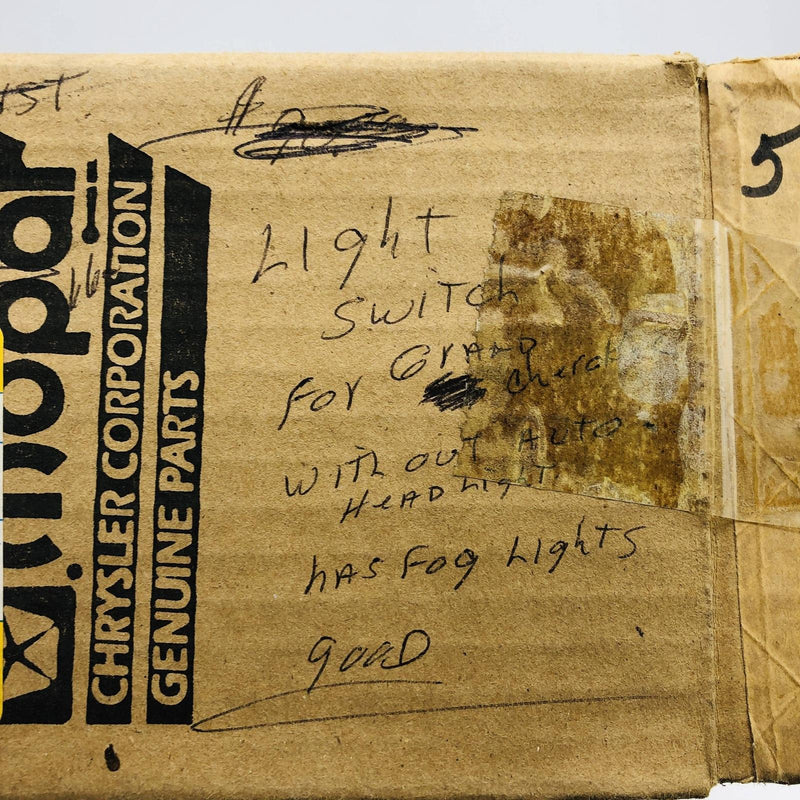 $
5
LIghT
SWITCh
FOR GRAND
WITHOUT AUTO
HEADLIGHT
hAS FOG LIghTS
gooD
mopar
CHRYSLER CORPORATION
GENUINE PARTS